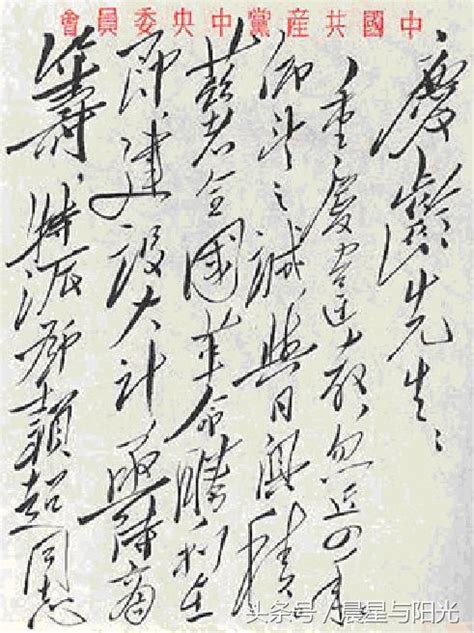 中國共産黨中央委員會
慶齡先生：
重慶違教，忽近四年。
仰望之誠，與日俱積。
茲者全國革命勝利在
即，建設大計，亟待商
籌，特派鄧穎超同志
头条号 / 晨星与阳光